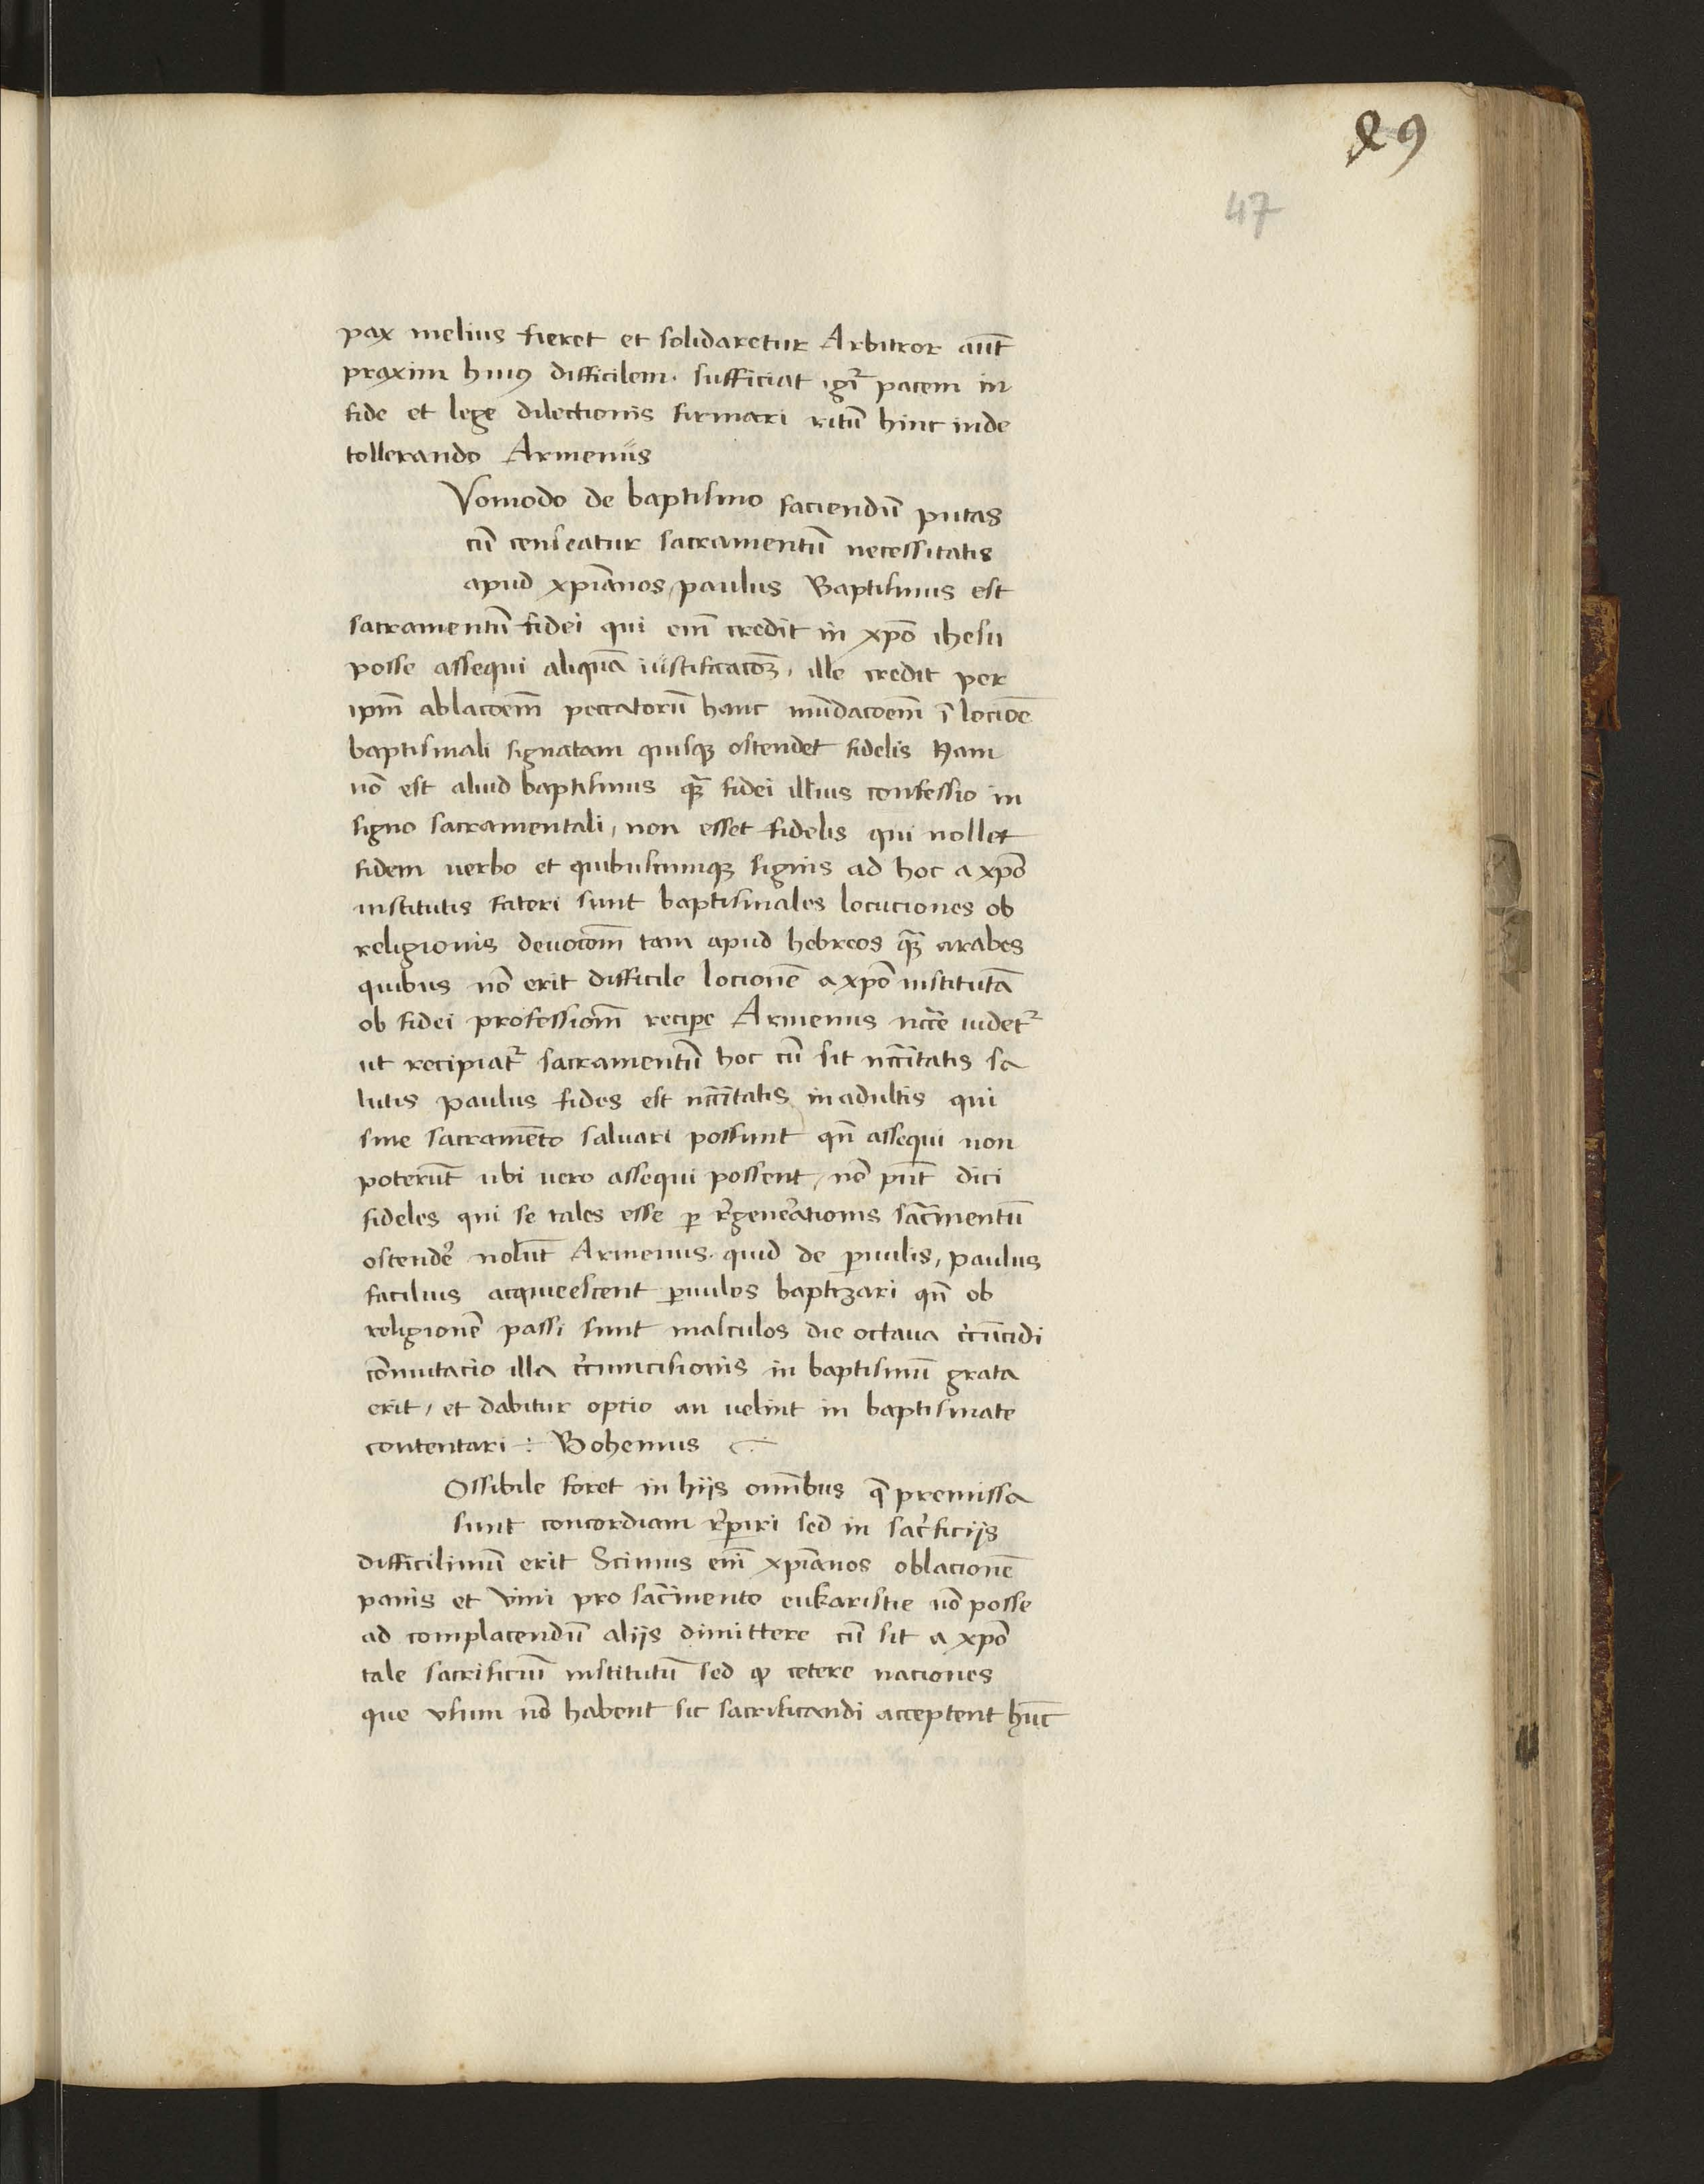 89
47
pax melius fieret et solidaretur Arbitror aut̄
praxim huiꝰ difficilem. sufficiat igr̄ pacem in
fide et lege dilectionis firmari ritū hinc inde
tollerando Armenus
Vomodo de baptismo faciendū putas
cū censeatur sacramentū necessitatis
apud xpīanos, paulus Baptismus est
sacramentū fidei qui em̄ credit in xpō ihesu
posse assequi aliquā iustificacōꝫ, ille credit per
ipm̄ ablacōem̄ peccatorū hanc mūdacōem̄ ī locioē
baptismali signatam quisqꝫ ostendet fidelis Nam
nō est aliud baptismus qꝫ̄ fidei illius confessio in
signo sacramentali, non esset fidelis qui nollet
fidem uerbo et quibuscumqꝫ signis ad hoc a xpō
institutis fateri sunt baptismales locuciones ob
religionis deuocōm̄ tam apud hebreos qꝫ̄ arabes
quibus nō erit difficile locionē a xpō institutā
ob fidei professiom̄ recipe Armenus nccē̄ uidetᷣ
ut recipiatᷣ sacramentū hoc cū sit nccītatis sa
lutis paulus fides est nccītatis in adultis qui
sine sacramēto saluari possunt qn̄ assequi non
poterūt ubi uero assequi possent, nō pn̄t dici
fideles qui se tales esse ꝑ r̄generationis sacr̄mentū
ostendē nolūt Armenus. quid de ꝑuulis, paulus
facilius acquiescent ꝑuulos baptizari qn̄ ob
religionē passi sunt masculos die octaua cīrcūcidi
cōmutacio illa cīrcumcisionis in baptismū grata
erit, et dabitur optio an uelint in baptismate
contentari ÷ Bohemus
Ossibile foret in hijs omībus q̄ premissa
sunt concordiam r̄periri sed in sacr̄ficijs
difficilimū erit Scimus em̄ xpīanos oblacionē
panis et vini pro sacr̄mento eukaristie nō posse
ad complacendū alijs dimittere cū sit a xpō
tale sacrificiū institutū sed ꝙ cetere naciones
que vsum nō habent sic sacrificandi acceptent hūc